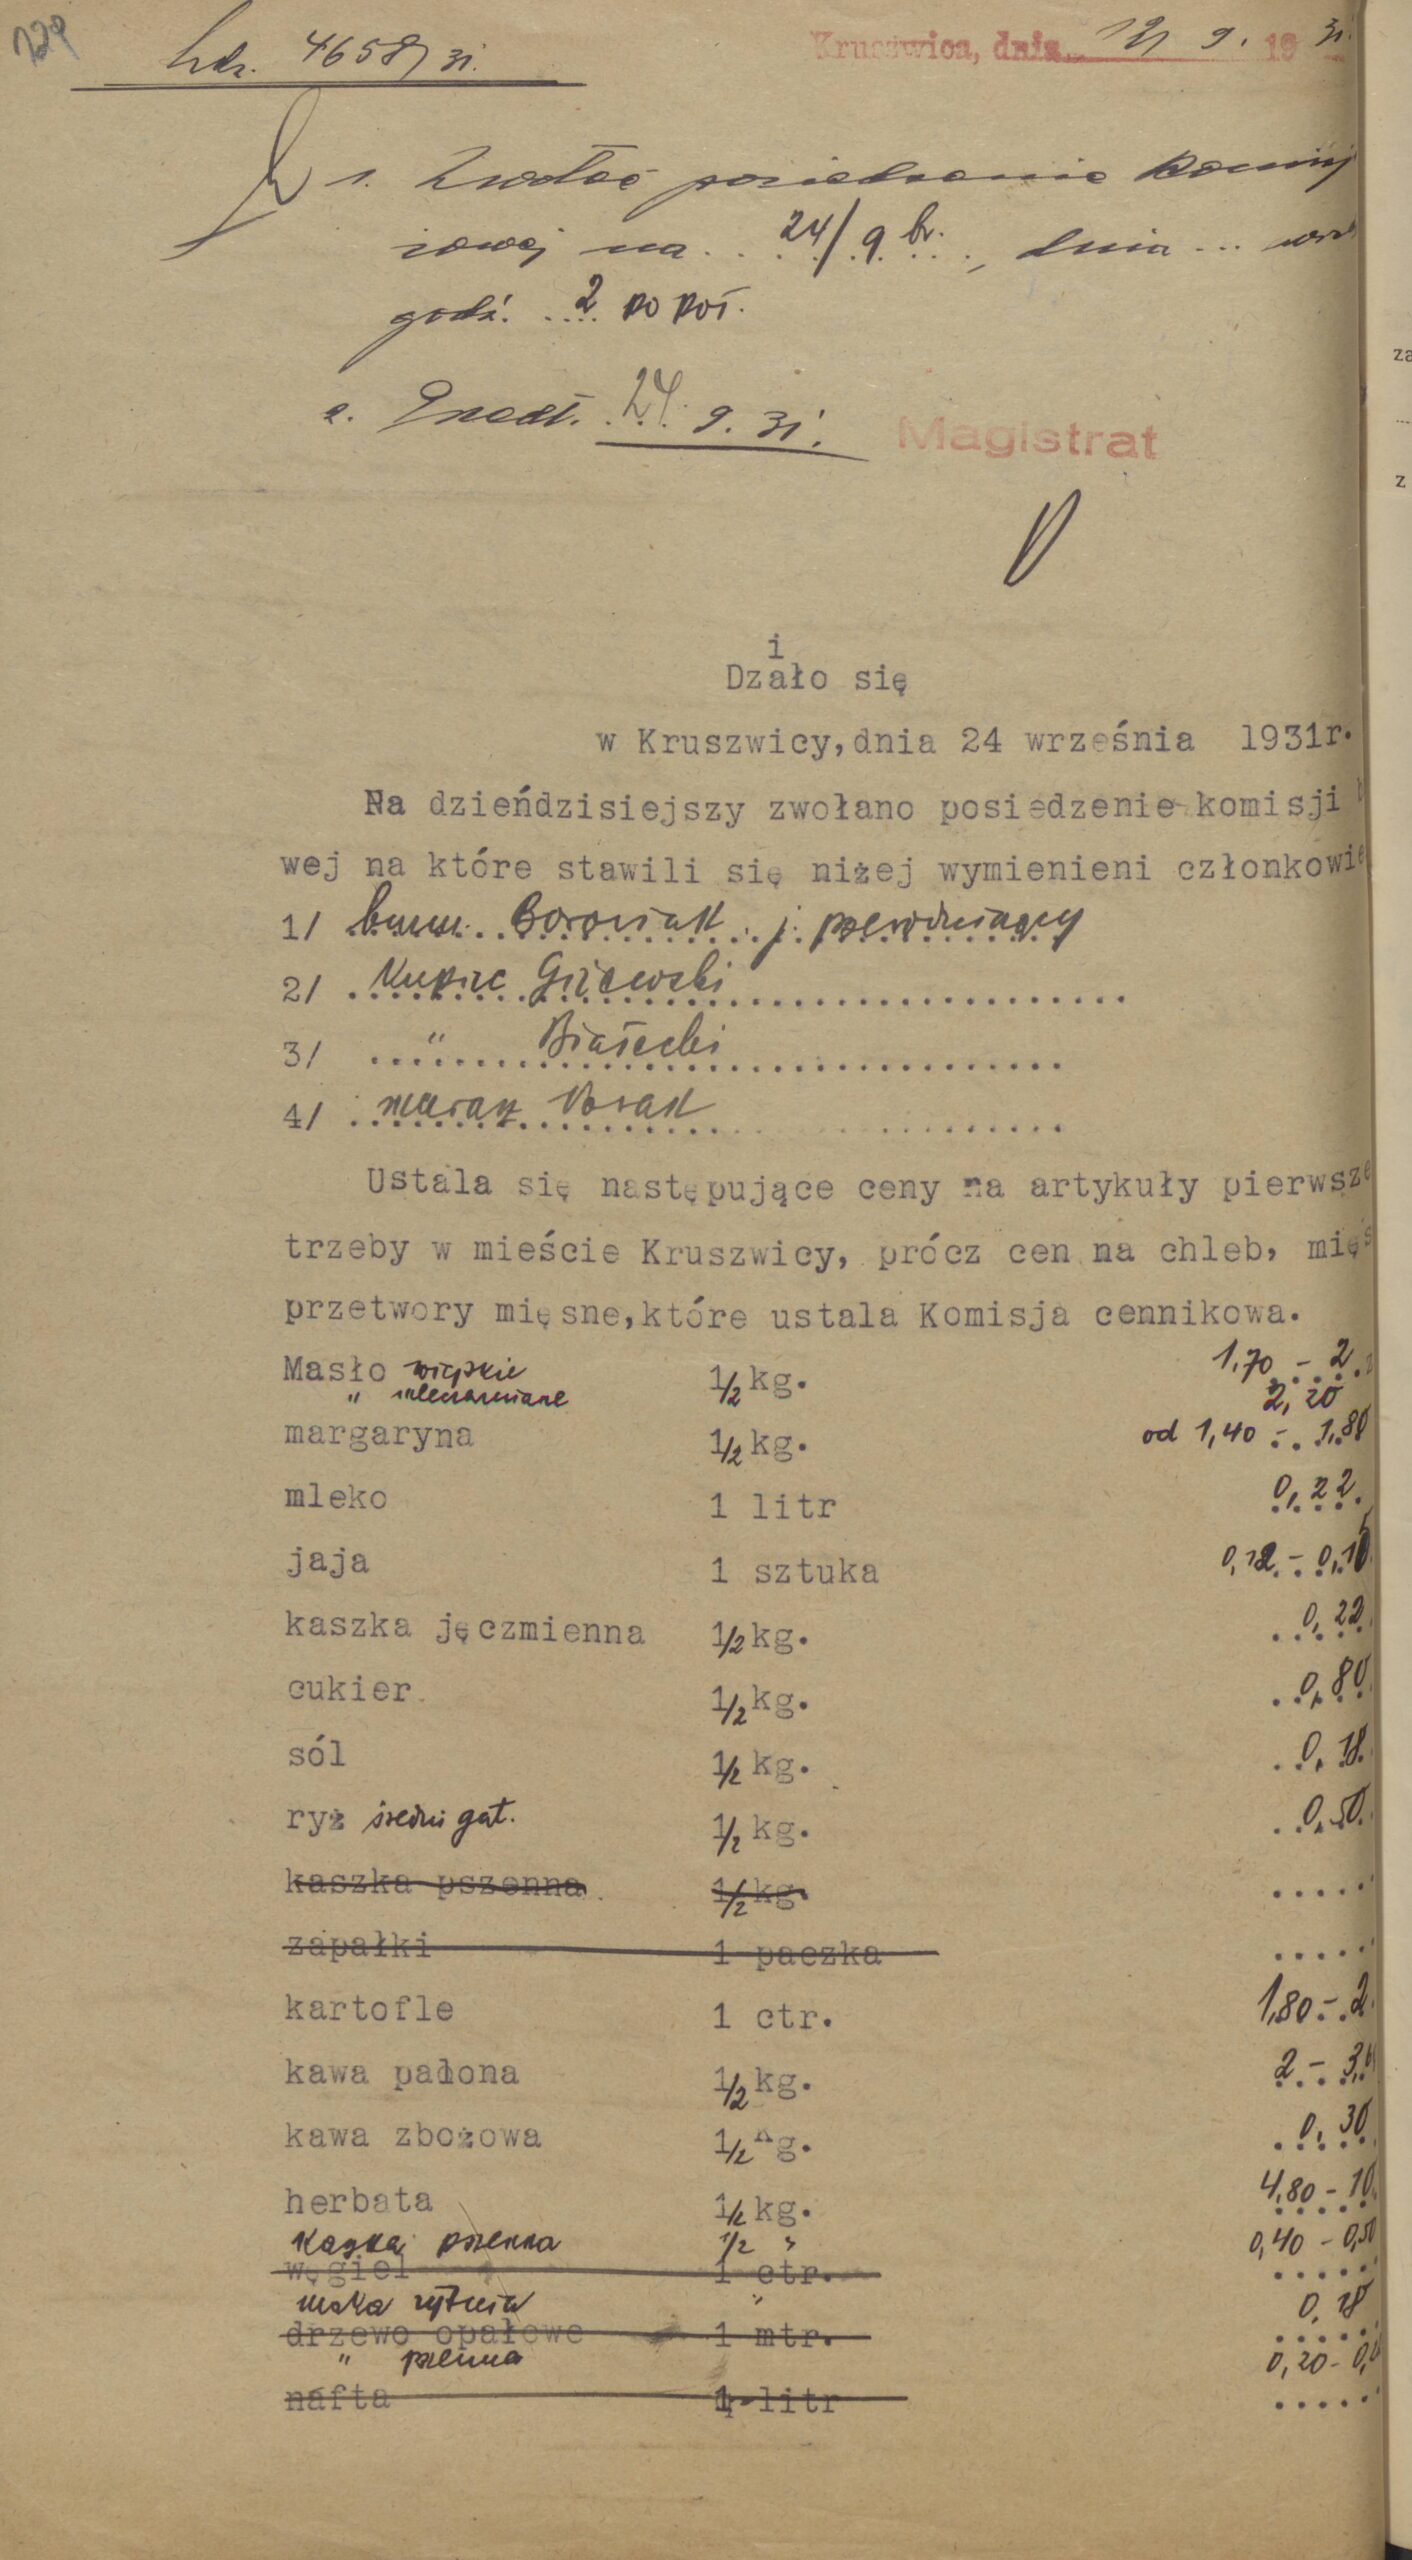 129
Ldz. 4658/31.
Kruszwica, dnia 12/ 9. 1931.
1. Zwołać posiedzenie Komisji
na 24/9 br., dnia ...
godz. 2 po poł.
2. Przedł. 24. 9. 31.
Magistrat
i
Dzało się
w Kruszwicy, dnia 24 września 1931r.
Na dzieńdzisiejszy zwołano posiedzenie komisji
wej na które stawili się niżej wymienieni członkowie
1/ burm. Borowiak j. przewodniczący
2/ Kupiec Giżewski
3/ " Białecki
4/ Nowak
Ustala się następujące ceny na artykuły pierwsze
trzeby w mieście Kruszwicy, prócz cen na chleb, mięs
przetwory mięsne, które ustala Komisja cennikowa.
Masło wiejskie 1/2 kg. 1,70 - 2.
" mleczarniane 2,20
margaryna 1/2 kg. od 1,40 - 1,80
mleko 1 litr 0,22.
jaja 1 sztuka 0,12 -
kaszka jęczmienna 1/2 kg. 0,22
cukier 1/2 kg. 0,80
sól 1/2 kg. 0,18.
ryż średni gat. 1/2 kg. 0,50.
kaszka pszenna 1/2 kg. .....
zapałki 1 paczka .....
kartofle 1 ctr. 1,80 - 2.
kawa palona 1/2 kg. 2 -
kawa zbożowa 1/2 kg. 0,30
herbata 1/2 kg. 4,80 - 10.
Kaszka pszenna 1/2 " 0,40 - 0,50
węgiel 1 ctr. .....
mąka żytnia " 0,18
drzewo opałowe 1 mtr. .....
" pszenna 0,20 -
nafta 1 litr .....
za
z